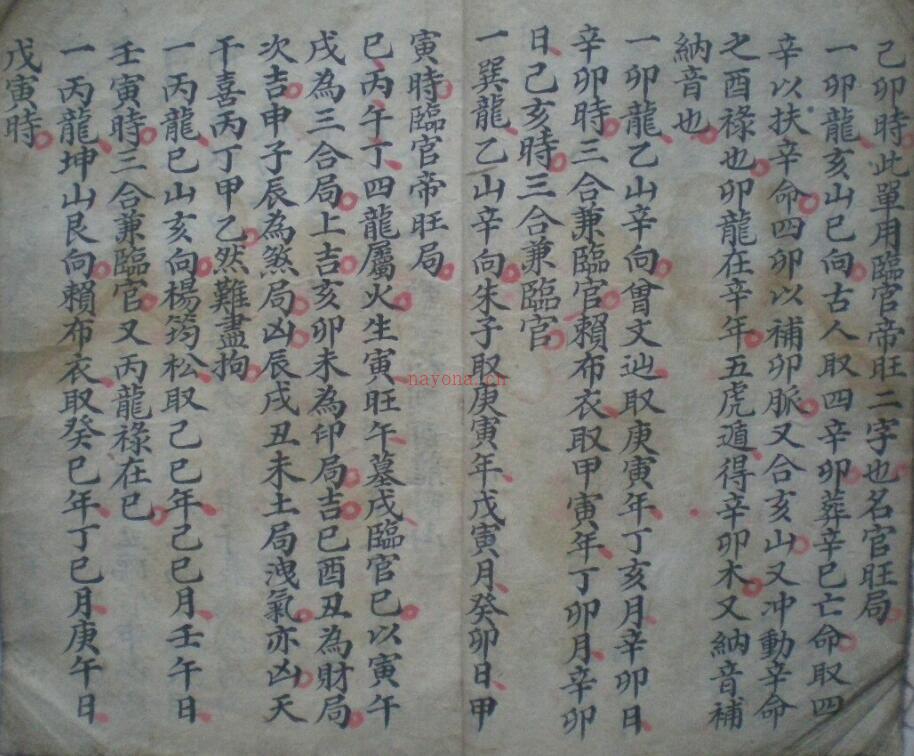 己卯時此單用臨官帝旺二字也名官旺局
一卯龍亥山巳向古人取四辛卯葬辛巳亡命取四
辛以扶辛命四卯以補卯脈又合亥山又冲動辛命
之酉祿也卯龍在辛年五虎遁得辛卯木又納音補
納音也
一卯龍乙山辛向曾文辿取庚寅年丁亥月辛卯日
辛卯時三合兼臨官賴布衣取甲寅年丁卯月辛卯
日己亥時三合兼臨官
一巽龍乙山辛向朱子取庚寅年戊寅月癸卯日甲
寅時臨官帝旺局
巳丙午丁四龍屬火生寅旺午墓戌臨官巳以寅午
戌為三合局上吉亥卯未為印局吉巳酉丑為財局
次吉申子辰為煞局凶辰戌丑未土局洩氣亦凶天
干喜丙丁甲乙然難盡拘
一丙龍巳山亥向楊筠松取己巳年己巳月壬午日
壬寅時三合兼臨官又丙龍祿在巳
一丙龍坤山艮向賴布衣取癸巳年丁巳月庚午日
戊寅時
nayona.cn